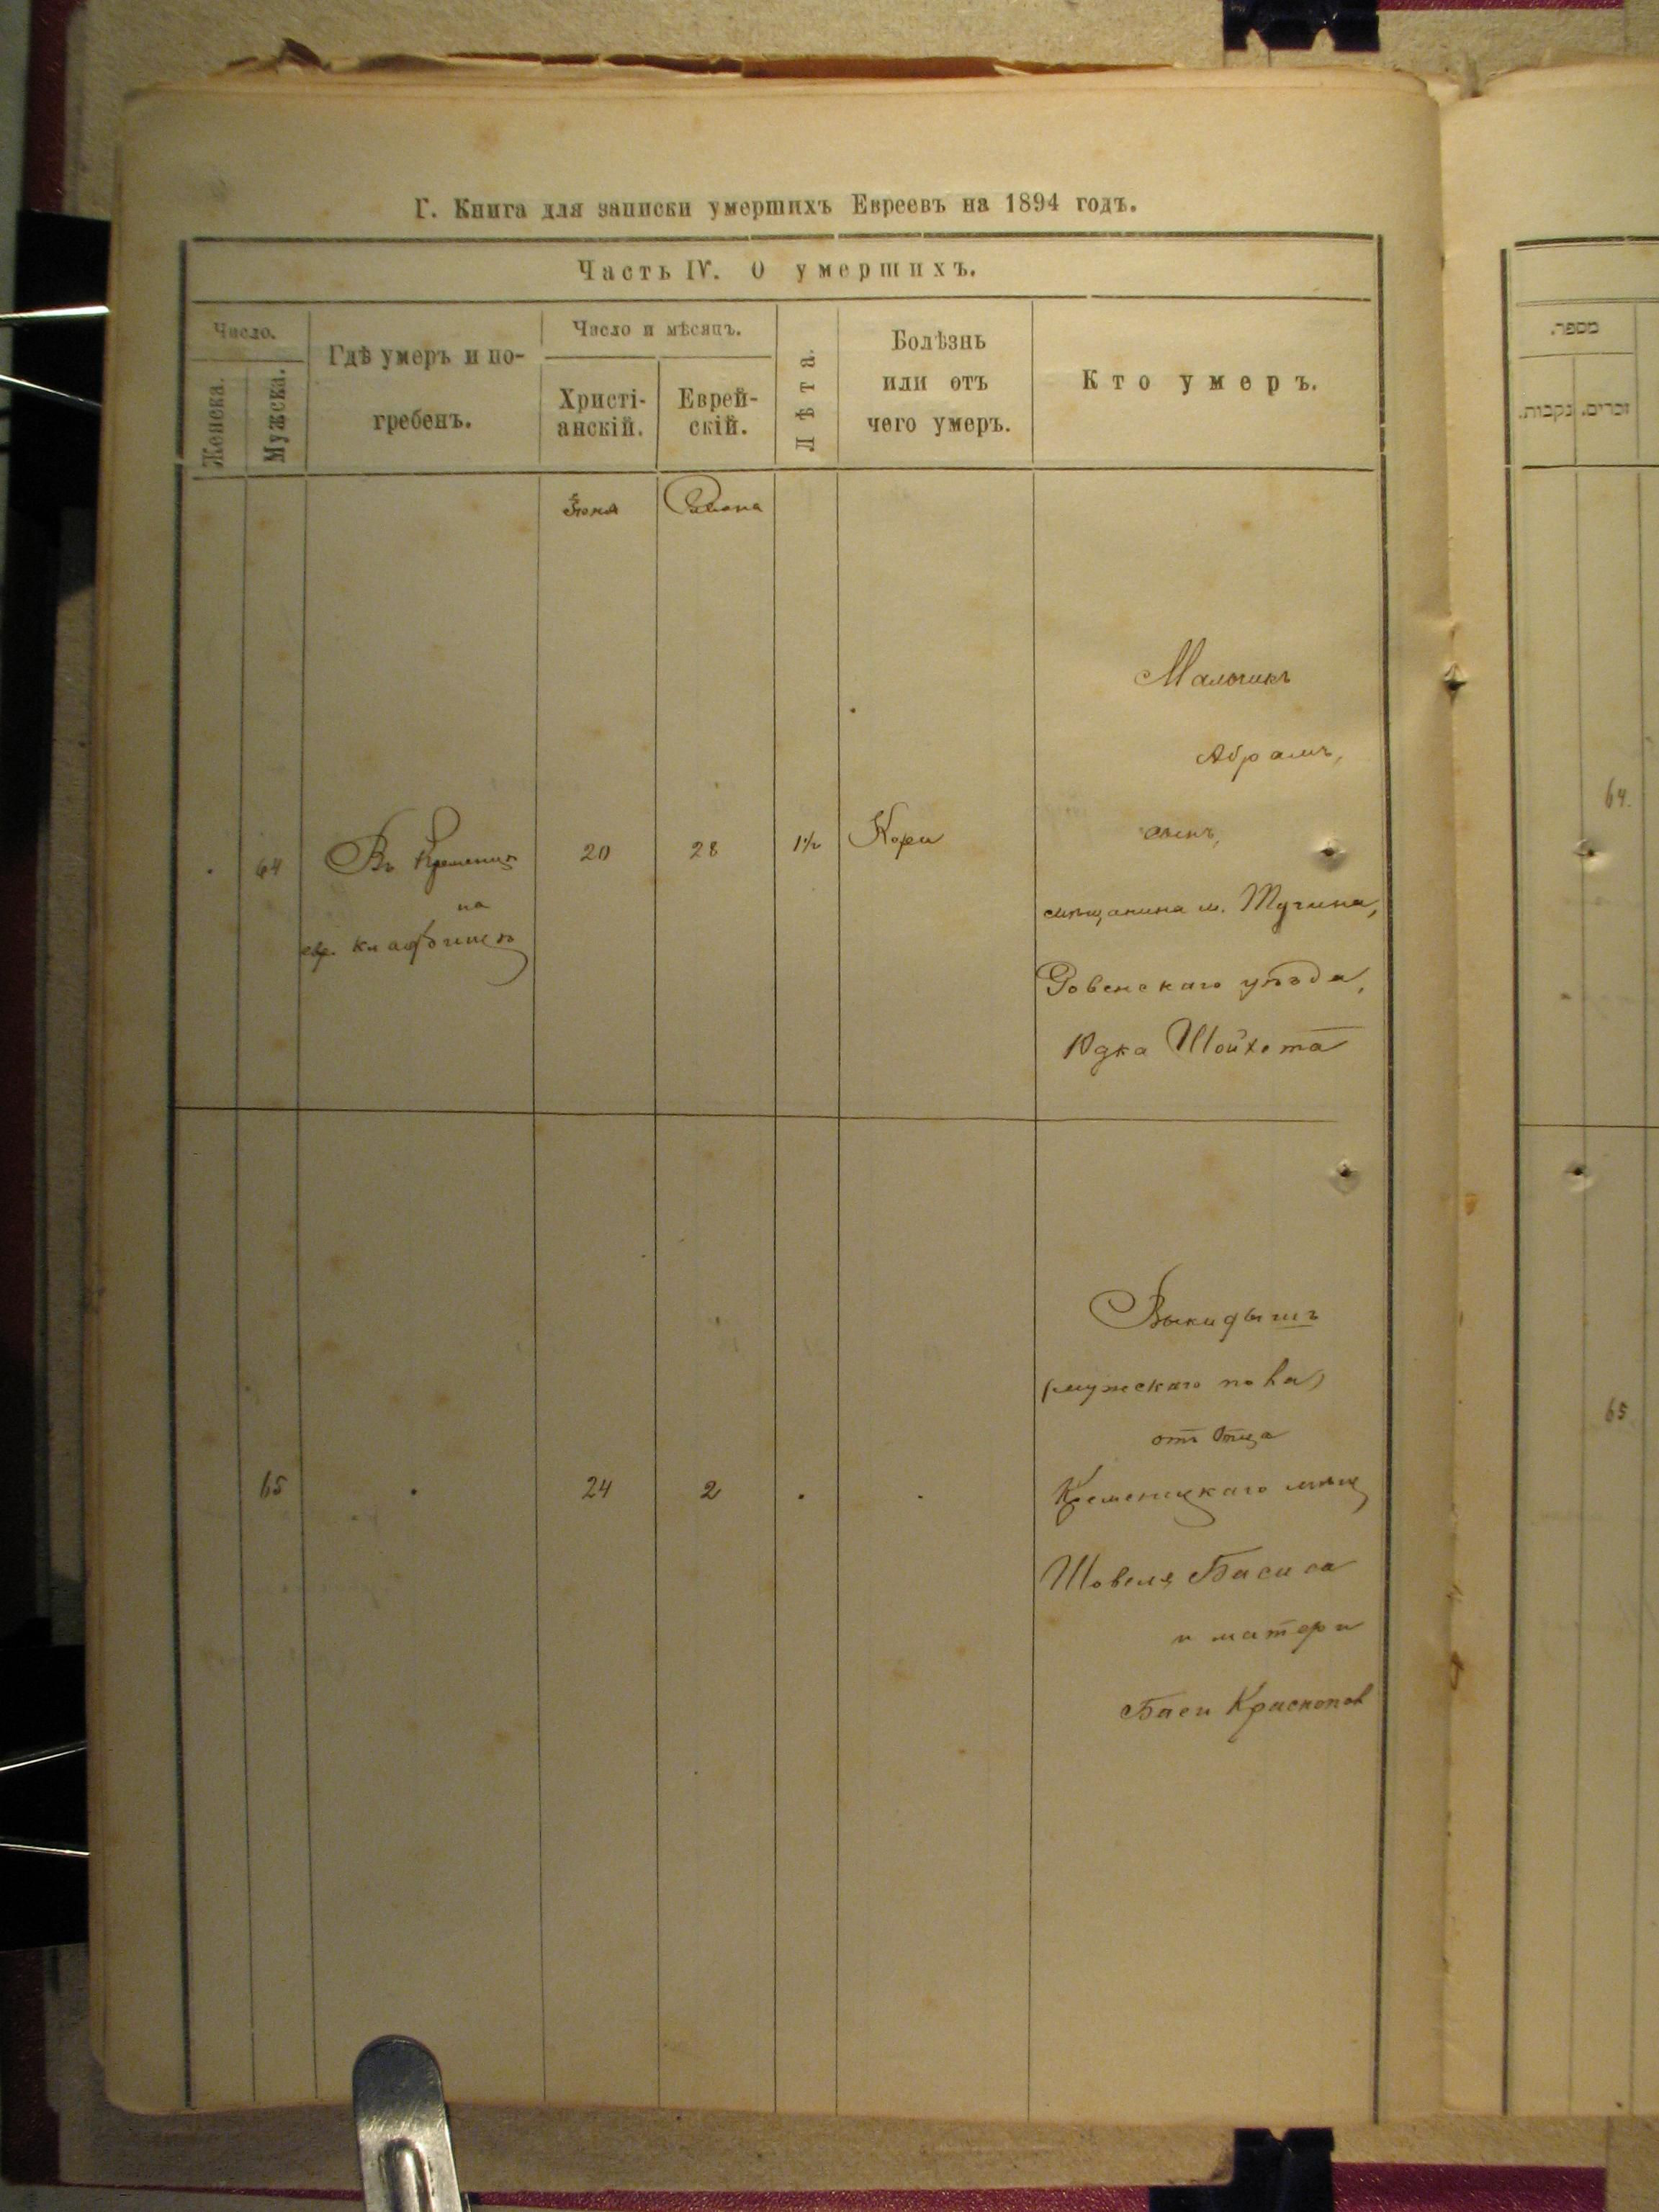 Г. Книга для записки умершихъ Евреевъ на 1894 годъ.
Часть IV. О умершихъ.
Число.
Женска.
Мужска.
Гдѣ умеръ и по-
гребенъ.
Число и мѣсяцъ.
Христі-
анскій.
Еврей-
скій.
Лѣта.
Болѣзнь
или отъ
чего умеръ.
Кто умеръ.
Іюня
Сивона
64
Въ Кременцѣ
на
евр. кладбищѣ
20
28
1½
Кори
Мальчикъ
Абрамъ,
сынъ,
мѣщанина м. Тучина,
Ровенскаго уѣзда,
Юдка Шойхета
65
24
2
Выкидышъ
(мужскаго пола)
отъ Отца
Кременецкаго мѣщ
Шовеля Басиса
и матери
Баси
מספר.
זכרים.
נקבות.
64.
65